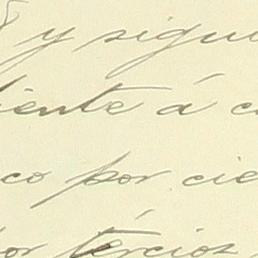 y sigu
diente á c
co por cie
por tércios